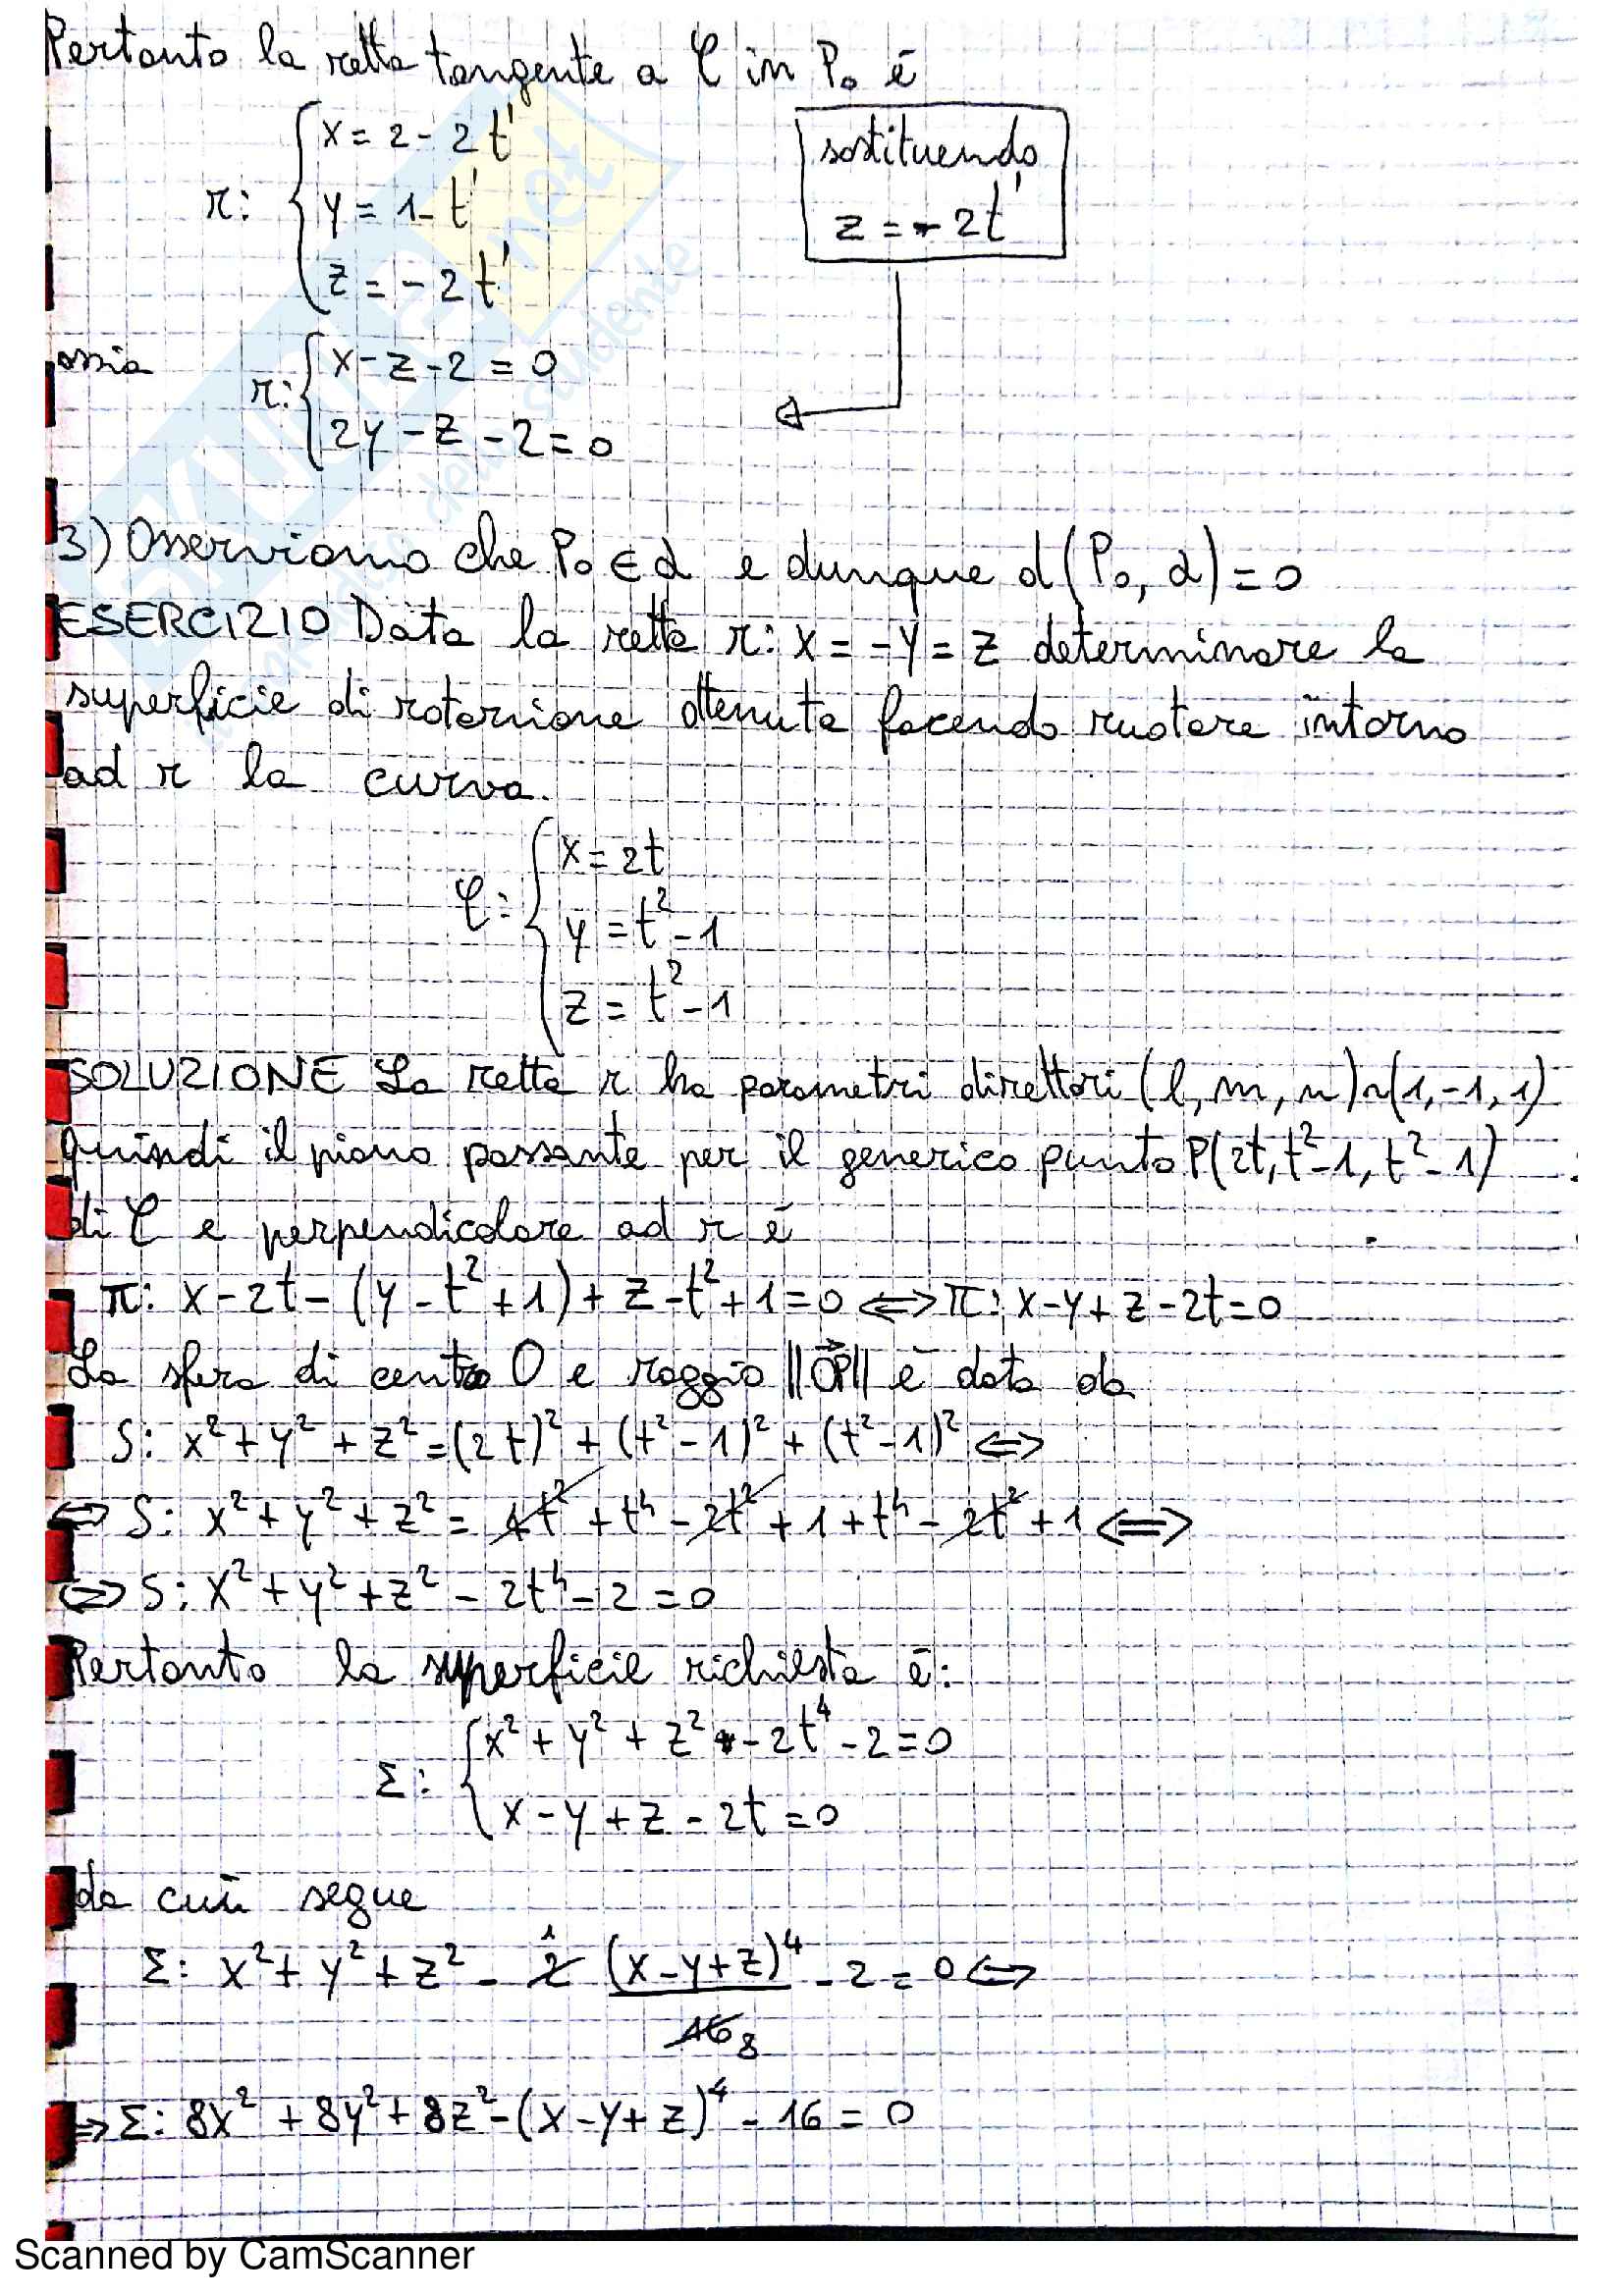 Pertanto la retta tangente a C in P₀ è
r: { x = 2 - 2t'
y = 1 - t'
z = -2t'
sostituendo
z = -2t'
ossia r: { x - z - 2 = 0
2y - z - 2 = 0
3) Osserviamo che P₀ ∈ α e dunque d(P₀, α) = 0
ESERCIZIO Data la retta r: x = -y = z determinare la
superficie di rotazione ottenuta facendo ruotare intorno
ad r la curva.
C: { x = 2t
y = t² - 1
z = t² - 1
SOLUZIONE La retta r ha parametri direttori (l, m, n) ~ (1, -1, 1)
quindi il piano passante per il generico punto P(2t, t² - 1, t² - 1)
di C e perpendicolare ad r è
π: x - 2t - (y - t² + 1) + z - t² + 1 = 0 ⟺ π: x - y + z - 2t = 0
La sfera di centro O e raggio ||OP|| è data da
S: x² + y² + z² = (2t)² + (t² - 1)² + (t² - 1)² ⟺
⟺ S: x² + y² + z² = 4t² + t⁴ - 2t² + 1 + t⁴ - 2t² + 1 ⟺
⟺ S: x² + y² + z² - 2t⁴ - 2 = 0
Pertanto la superficie richiesta è:
Σ: { x² + y² + z² - 2t⁴ - 2 = 0
x - y + z - 2t = 0
da cui segue
Σ: x² + y² + z² - 2 (x - y + z)⁴ / 16 - 2 = 0 ⟺
1
8
⟹ Σ: 8x² + 8y² + 8z² - (x - y + z)⁴ - 16 = 0
Scanned by CamScanner